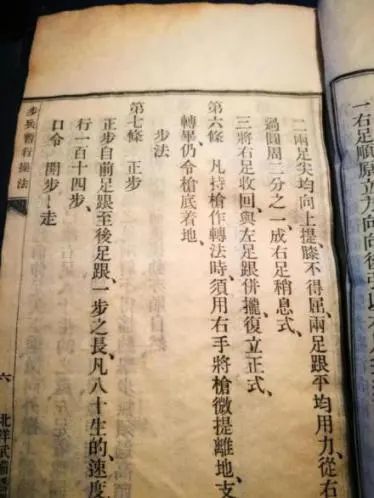 一右足順原立方向向後引以
二兩足尖均向上提膝不得屈兩足跟平均用力從右
過圓周二分之一、成右足稍息式、
三將右足收回與左足跟併攏復立正式、
第六條 凡持槍作轉法時須用右手將槍微提離地支
轉畢仍令槍底着地、
步法
第七條 正步
正步自前足跟至後足跟一步之長凡八十生的速度
行一百十四步、
口令 開步—走
步兵暫行操法
六
北洋武備